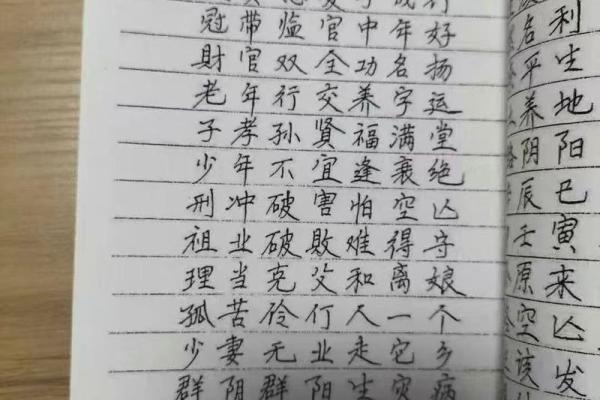 冠带临官中年好
财官双全功名扬
老年行交养字运
子孝孙贤福满堂
少年不宜逢衰绝
刑冲破害怕空亡
祖业破败难得守
理当克父和离娘
孤苦伶仃人一个
少妻无业走它乡
群阴群阳生灾病
利
名
平生
养地
阴阳
辰巳
壬寅
原来
空亡
该发